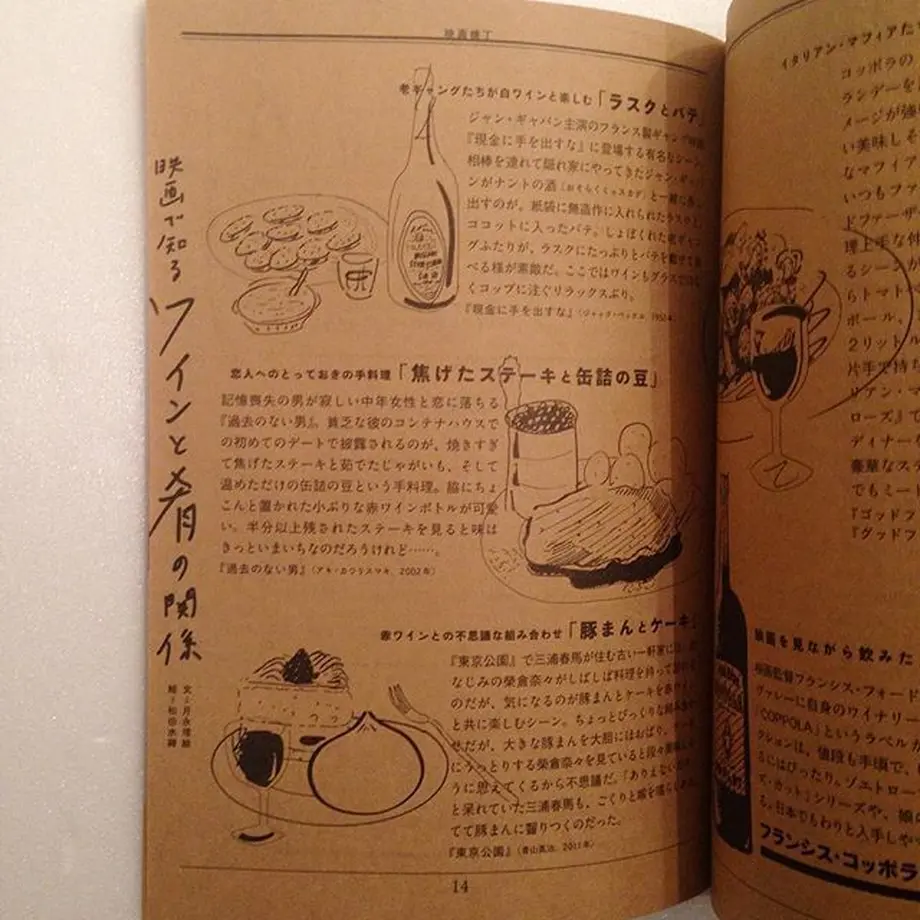 映画横丁
映画で知る
ワインと肴の関係
老ギャングたちが白ワインと楽しむ「ラスクとパテ」
ジャン・ギャバン主演のフランス製ギャング映画
『現金に手を出すな』に登場する有名なシーン。
相棒を連れて隠れ家にやってきたジャン・ギャバ
ンがナントの酒(おそらくミュスカデ)と一緒に
出すのが、紙袋に無造作に入れられたラスクと、
ココットに入ったパテ。しょぼくれた老ギャン
グふたりが、ラスクにたっぷりとパテを載せて食
べる様が素敵だ。ここではワインもグラスではな
くコップに注ぐリラックスぶり。
『現金に手を出すな』(ジャック・ベッケル、
恋人へのとっておきの手料理「焦げたステーキと缶詰の豆」
記憶喪失の男が寂しい中年女性と恋に落ちる
『過去のない男』。貧乏な彼のコンテナハウスで
の初めてのデートで披露されるのが、焼きすぎ
て焦げたステーキと茹でたじゃがいも、そして
温めただけの缶詰の豆という手料理。脇にちょ
こんと置かれた小ぶりな赤ワインボトルが可愛
い。半分以上残されたステーキを見ると味は
きっといまいちなのだろうけれど……。
『過去のない男』(アキ・カウリスマキ、2002年)
赤ワインとの不思議な組み合わせ「豚まんとケーキ」
『東京公園』で三浦春馬が住む古い一軒家に、
なじみの榮倉奈々がしばしば料理を持って
のだが、気になるのが豚まんとケーキを赤ワイン
と共に楽しむシーン。ちょっとびっくりな組み合わ
せだが、大きな豚まんを大胆にほおばり、ケーキ
にうっとりする榮倉奈々を見ていると段々
うに思えてくるから不思議だ。「ありえない
と呆れていた三浦春馬も、ごくりと喉を鳴らし
てて豚まんに齧りつくのだった。
『東京公園』(青山真治、2011年)
文=月永理絵
14
イタリアン・マフィアた
コッポラの
ランデーを
メージが強
い美味しそ
なマフィア
いつもフ
ドファーザ
理上手な付
るシーンが
らトマト
ボール、
2リットル
片手で持
リアン・マ
ローズ』で
ディナー
豪華なス
でもミー
『ゴッドフ
『グッドフ
映画を見ながら飲みた
映画監督フランシス・フォード
ヴァレーに自身のワイナリー
「COPPOLA」というラベルが
クションは、値段も手頃で、
るにはぴったり。ゾエトロー
ズ・カット」シリーズや、娘の
る。日本でもわりと入手しや
フランシス・コッポラ